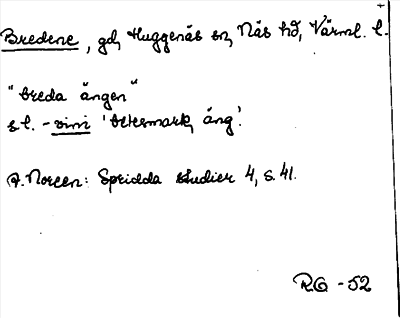 Bredene, gd, Huggenäs sn, Näs hd, Värml. l.
"breda ängen"
s l. - vini 'betesmark, äng'.
A. Noreen: Spridda studier 4, s. 41.
R.G - 52